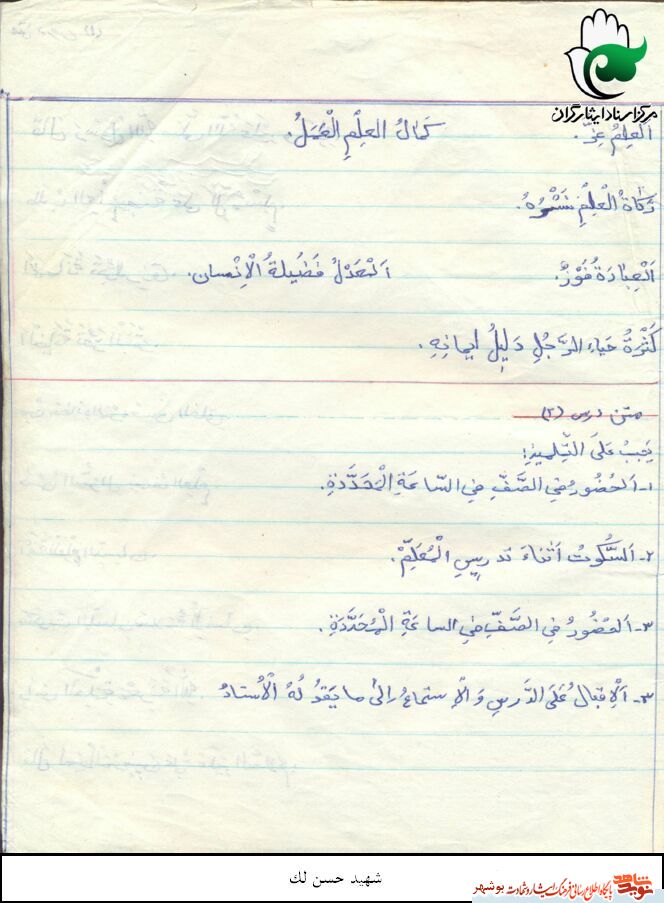 مرکز اسناد ایثارگران
اَلْعِلْمُ عِزٌّ. كَمَالُ العِلْمِ الْعَمَلُ.
زَكَاةُ الْعِلْمِ نَشْرُهُ.
اَلْعِبَادَةُ فَوْزٌ. اَلْعَدْلُ فَضِيلَةُ الْاِنْسان.
كَثْرَةُ حَيَاءِ الرَّجُلِ دَلِيلُ اِيمانِهِ.
متن درس (۲)
يَجِبُ عَلَى التِّلميذِ:
۱- اَلحُضُورُ فِي الصَّفِّ فِي السَّاعَةِ الْمُحَدَّدَةِ.
۲- اَلسُّكُوتُ اَثْنَاءَ تَدرِيسِ الْمُعَلِّمْ.
۳- اَلحُضُورُ فِي الصَّفِّ فِي الساعَةِ الْمُحَدَّدَةِ.
۳- اَلْاِقبَالُ عَلَى الدَّرسِ وَ الْاِستماعُ اِلىٰ ما يَقُدُ لُهُ الْاُستادُ
شهید حسن لك
نوید شاهد پایگاه اطلاع رسانی فرهنگ ایثار و شهادت بوشهر